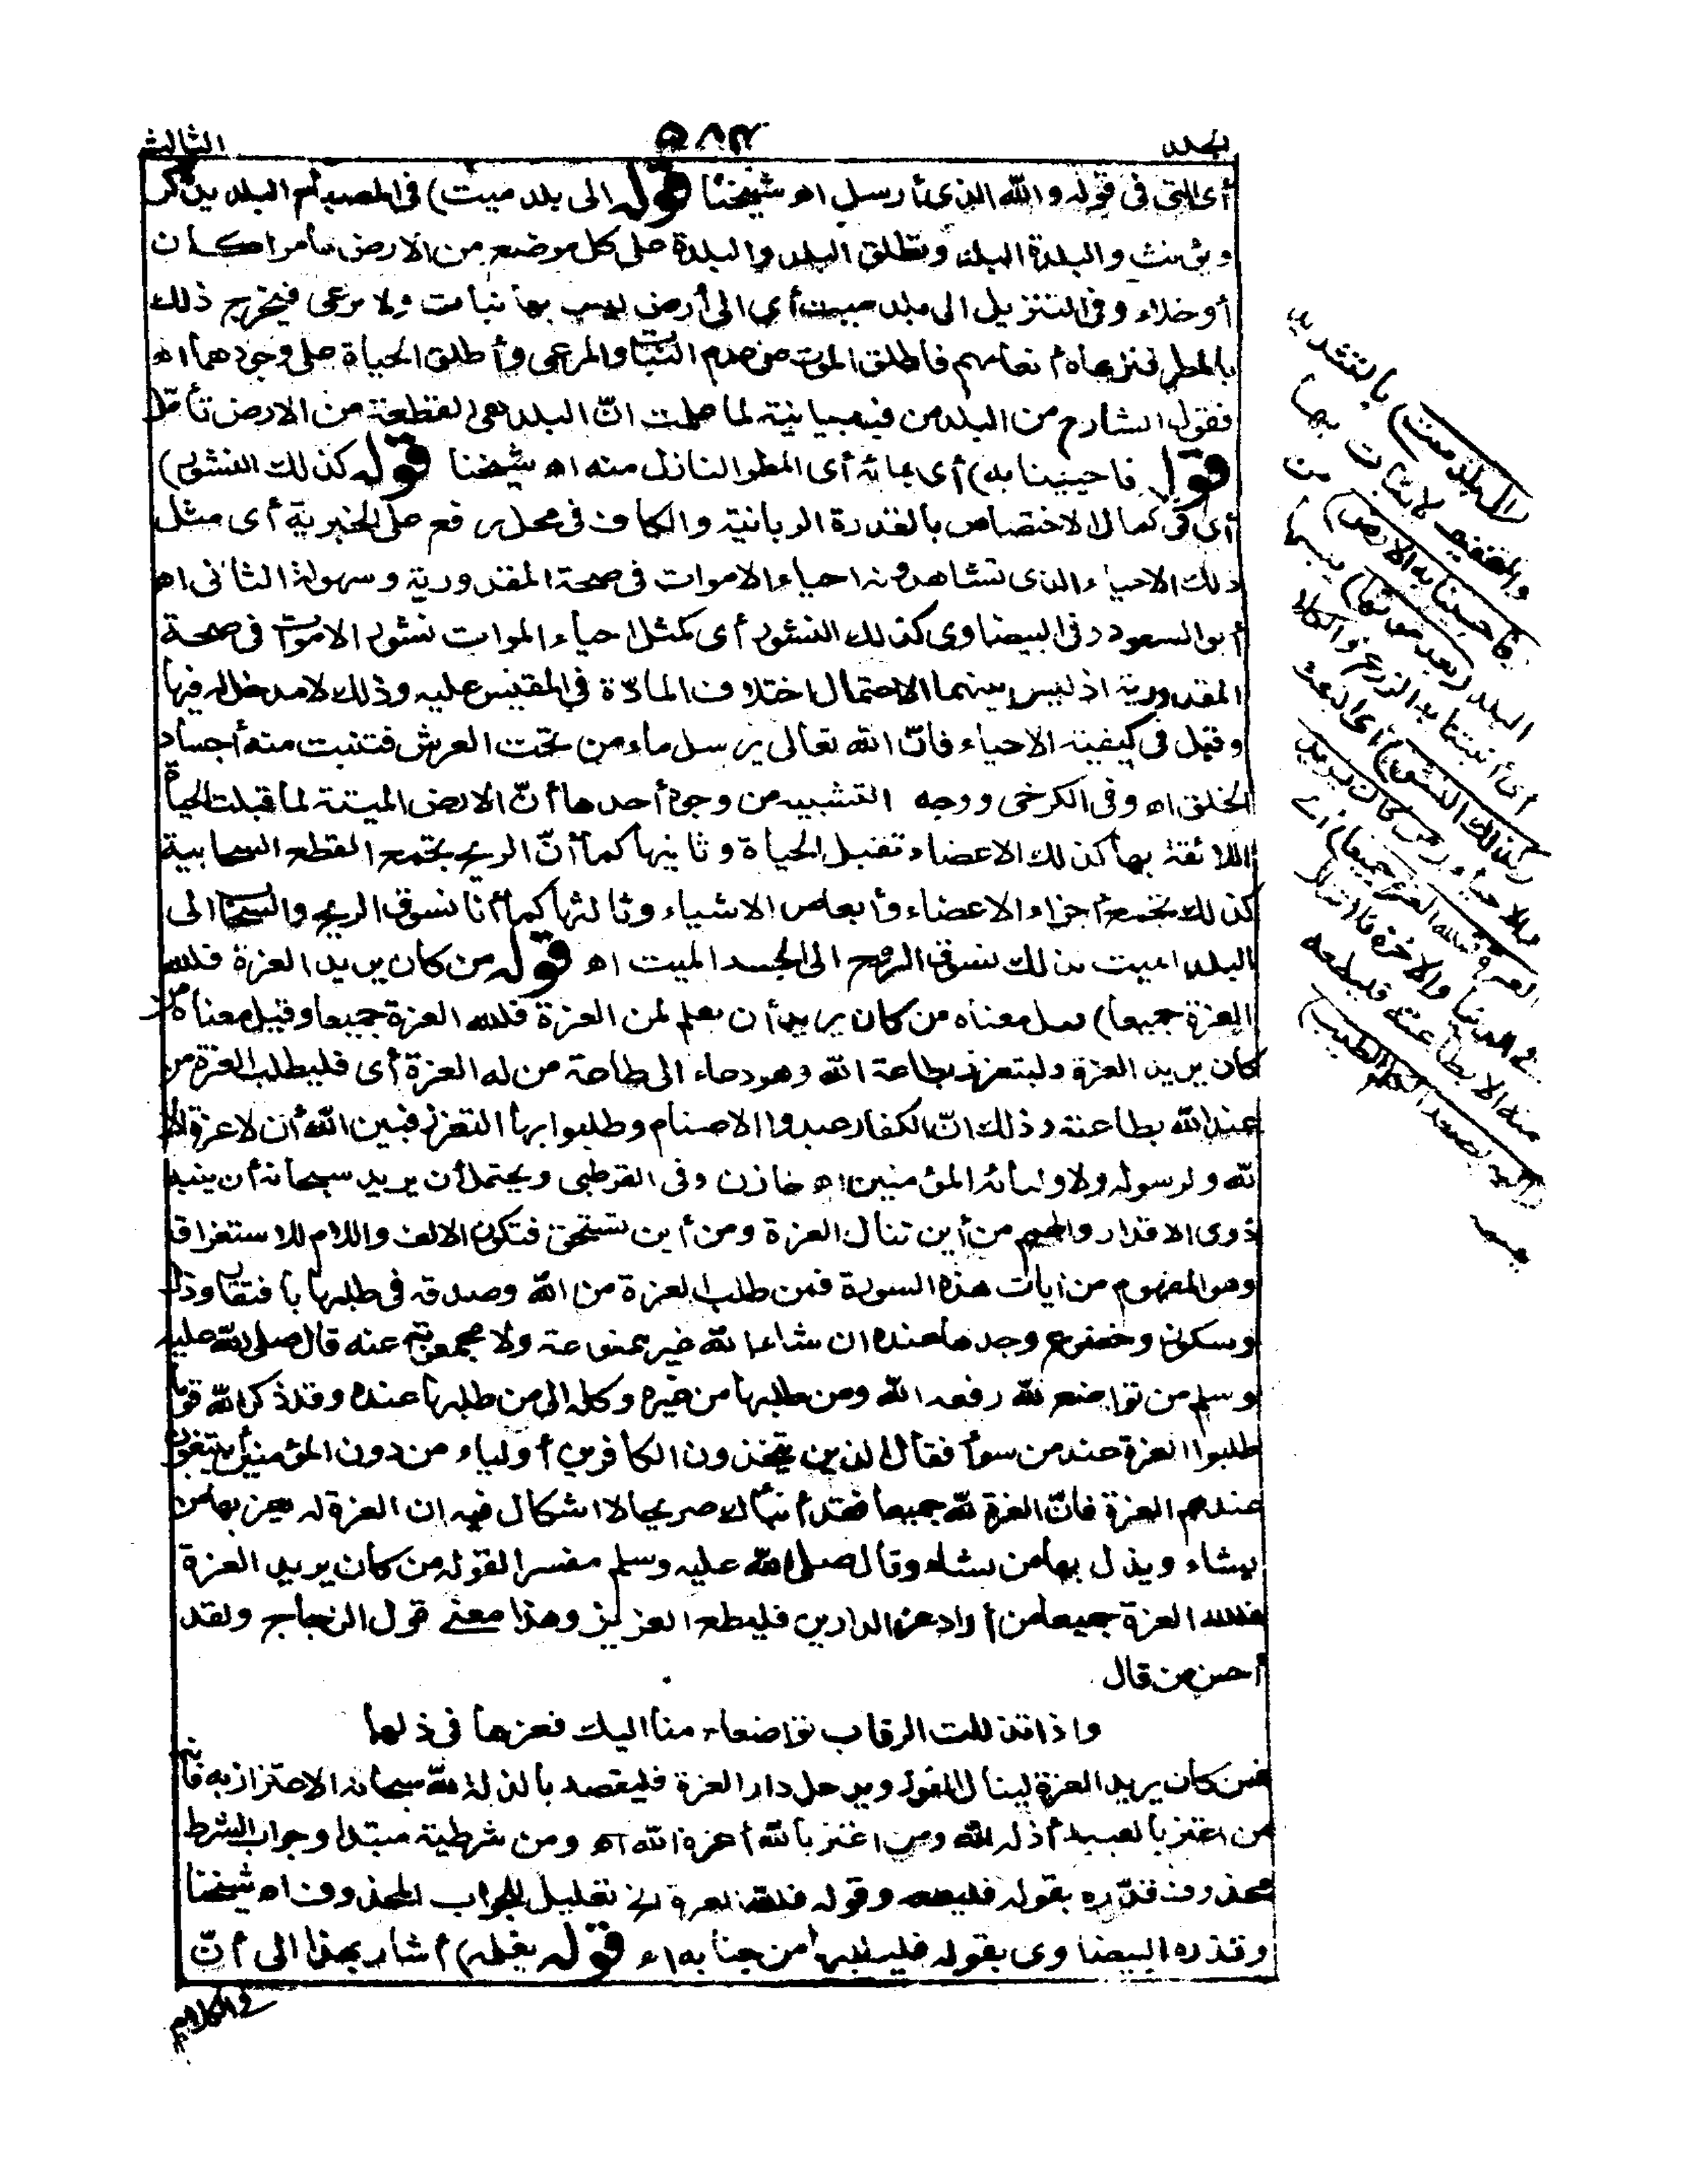 المجلد
٥٨٣
الثالث
أى التى فى قوله والله الذى أرسل اه شيخنا قوله الى بلد ميت) فى المصباح البلد يذكر
ويؤنث والبلدة البلد وتطلق البلد والبلدة على كل موضع من الارض عامرا كان
أو خلاء وفى التنزيل الى بلد ميت أى الى أرض ليس بها نبات ولا مرعى فيخرج ذلك
بالمطر فترعاه أنعامهم فاطلق الموت على عدم النبات والمرعى وأطلق الحياة على وجودهما اه
فقول الشارح من البلد من فيه بيانية لما علمت انّ البلد هى القطعة من الارض تأمّل
قوله فاحيينا به) أى بمائه أى المطر النازل منه اه شيخنا قوله كذلك النشور)
أى فى كمال الاختصاص بالقدرة الربانية والكاف فى محل رفع على الخبرية أى مثل
ذلك الاحياء الذى تشاهدونه احياء الاموات فى صحة المقدورية وسهولة الثانى اه
أبو السعود وفى البيضاوى كذلك النشور أى كمثل احياء الموات نشور الاموات فى صحة
المقدورية اذ ليس بينهما الا احتمال اختلاف المادّة فى المقيس عليه وذلك لا مدخل له فيها
وقيل فى كيفية الاحياء فانّ الله تعالى يرسل ماء من تحت العرش فتنبت منه أجساد
الخلق اه وفى الكرخى ووجه التشبيه من وجوه أحدها أنّ الارض الميتة لما قبلت الحياة
اللائقة بها كذلك الاعضاء تقبل الحياة وثانيها كما أنّ الريح يجتمع القطع السحابية
كذلك تجتمع أجزاء الاعضاء وأبعاض الاشياء وثالثها كما أنا نسوق الريح والسحاب الى
البلد الميت كذلك نسوق الروح الى الجسد الميت اه قوله من كان يريد العزة فلله
العزة جميعا) قيل معناه من كان يريد أن يعلم لمن العزة فلله العزة جميعا وقيل معناه من
كان يريد العزة فليتعزز بطاعة الله وهو دعاء الى طاعة من له العزة أى فليطلب العزة من
عند الله بطاعته وذلك انّ الكفار عبدوا الاصنام وطلبوا بها التعزز فبين الله أن لا عزة الا
لله ولرسوله ولاوليائه المؤمنين اه خازن وفى القرطبى ويحتمل أن يريد سبحانه أن ينبه
ذوى الاقدار والهمم من أين تنال العزة ومن أين تستحق فتكون الالف واللام للاستغراق
وهو المفهوم من آيات هذه السورة فمن طلب العزة من الله وصدقه فى طلبها بافتقار وذل
وسكون وخضوع وجدها عنده ان شاء الله غير ممنوعة ولا محجوبة عنه قال صلى الله عليه
وسلم من تواضع لله رفعه الله ومن طلبها من غيره وكله الى من طلبها عنده وقد ذكر الله قوما
طلبوا العزة عند من سواه فقال الذين يتخذون الكافرين أولياء من دون المؤمنين أيبتغون
عندهم العزة فانّ العزة لله جميعا فقد أنبأك صريحا لا اشكال فيه ان العزة له يعز بها من
يشاء ويذل بها من يشاء وقال صلى الله عليه وسلم مفسرا لقوله من كان يريد العزة
فلله العزة جميعا من أراد عز الدارين فليطع العزيز وهذا معنى قول الزجاج ولقد
أحسن من قال
واذا تذللت الرقاب تواضعا منا اليك فعزها فى ذلها
فمن كان يريد العزة لينال الفوز ويدخل دار العزة فليقصد بالذلة لله سبحانه الاعتزاز به فانه
من اعتز بالعبيد أذله الله ومن اعتز بالله أعزه الله اه ومن شرطية مبتدا وجواب الشرط
محذوف قدّره بقوله فليطعه وقوله فلله العزة الخ تعليل للجواب المحذوف اه شيخنا
وقدره البيضاوى بقوله فليطلبها من جنابه اه قوله يعلمه) أشار بهذا الى أنّ
فى الكلام
(الى بلد ميت) بالتشديد
والتخفيف لا نبات بها
(فاحيينا به الارض) من
البلد (بعد موتها) يبسها
أى أنبتنا به الزرع والكلا
(كذلك النشور) أى البعث
والاحياء (من كان يريد
العزة فلله العزة جميعا) أى
فى الدنيا والاخرة فلا تنال
منه الا بطاعته فليطعه
(اليه يصعد الكلم الطيب)